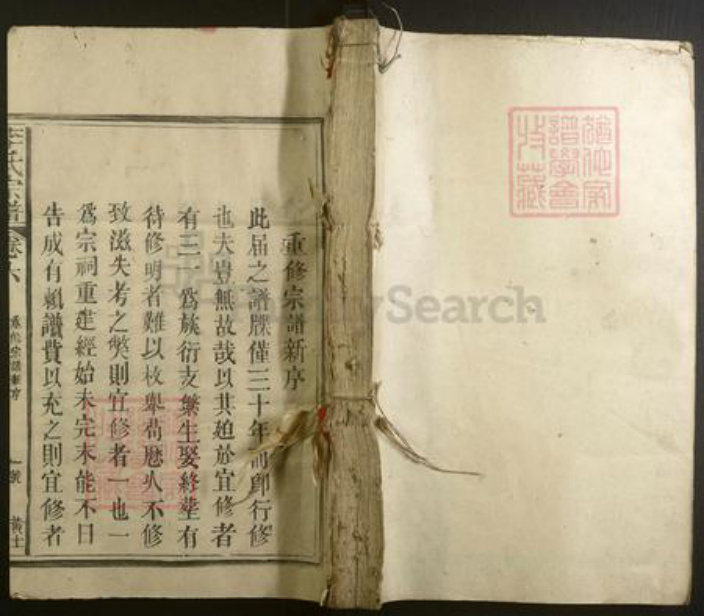 重修宗譜新序
此届之譜牒僅三十年而卽行修
也夫豈無故哉以其廹於宜修者
有三一爲族衍支繁生娶終塟有
待修明者難以枚舉苟歷久不修
致滋失考之獘則宜修者一也一
爲宗祠重建經始未完未能不日
告成有賴譜費以充之則宜修者
李氏宗譜 卷六 重修宗譜新序 一 號
譜學會
收藏
Search